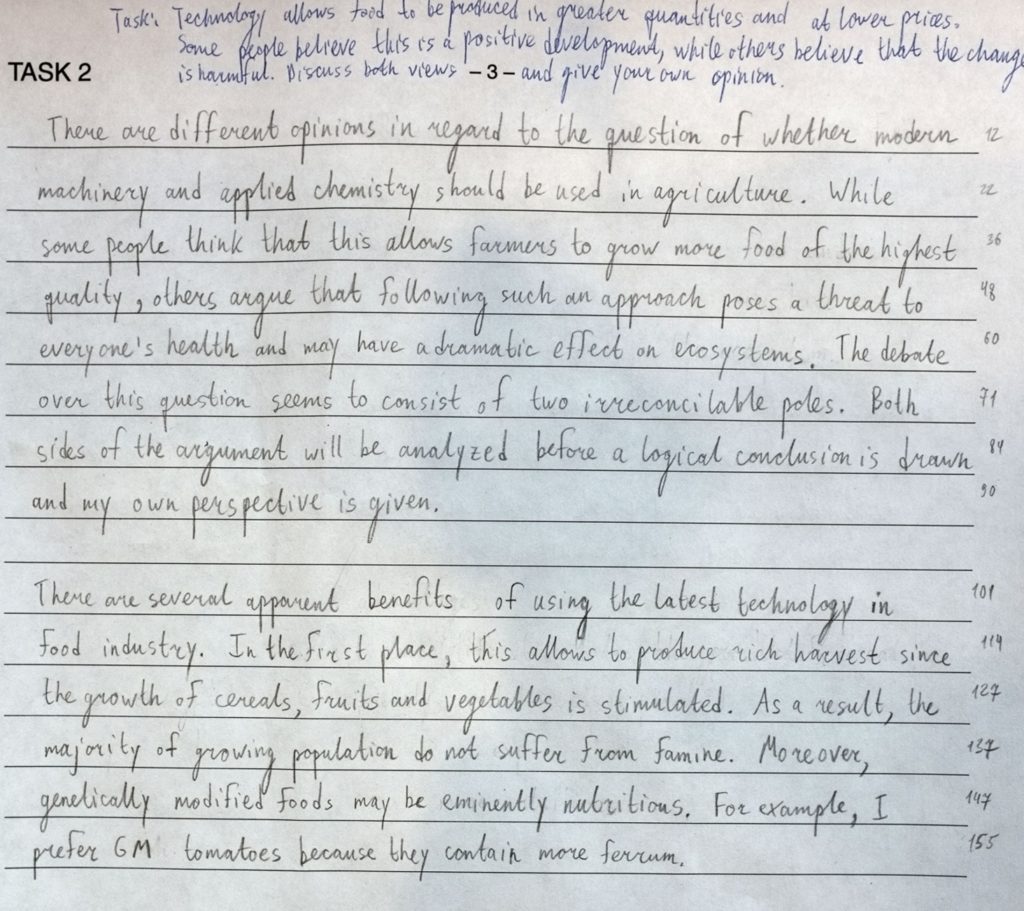 Task: Technology allows food to be produced in greater quantities and at lower prices.
Some people believe this is a positive development, while others believe that the change
is harmful. Discuss both views and give your own opinion.
TASK 2
- 3 -
There are different opinions in regard to the question of whether modern 12
machinery and applied chemistry should be used in agriculture. While 22
some people think that this allows farmers to grow more food of the highest 36
quality, others argue that following such an approach poses a threat to 48
everyone's health and may have a dramatic effect on ecosystems. The debate 60
over this question seems to consist of two irreconcilable poles. Both 71
sides of the argument will be analyzed before a logical conclusion is drawn 84
and my own perspective is given. 90
There are several apparent benefits of using the latest technology in 101
food industry. In the first place, this allows to produce rich harvest since 114
the growth of cereals, fruits and vegetables is stimulated. As a result, the 127
majority of growing population do not suffer from famine. Moreover, 137
genetically modified foods may be eminently nutritious. For example, I 147
prefer GM tomatoes because they contain more ferrum. 155